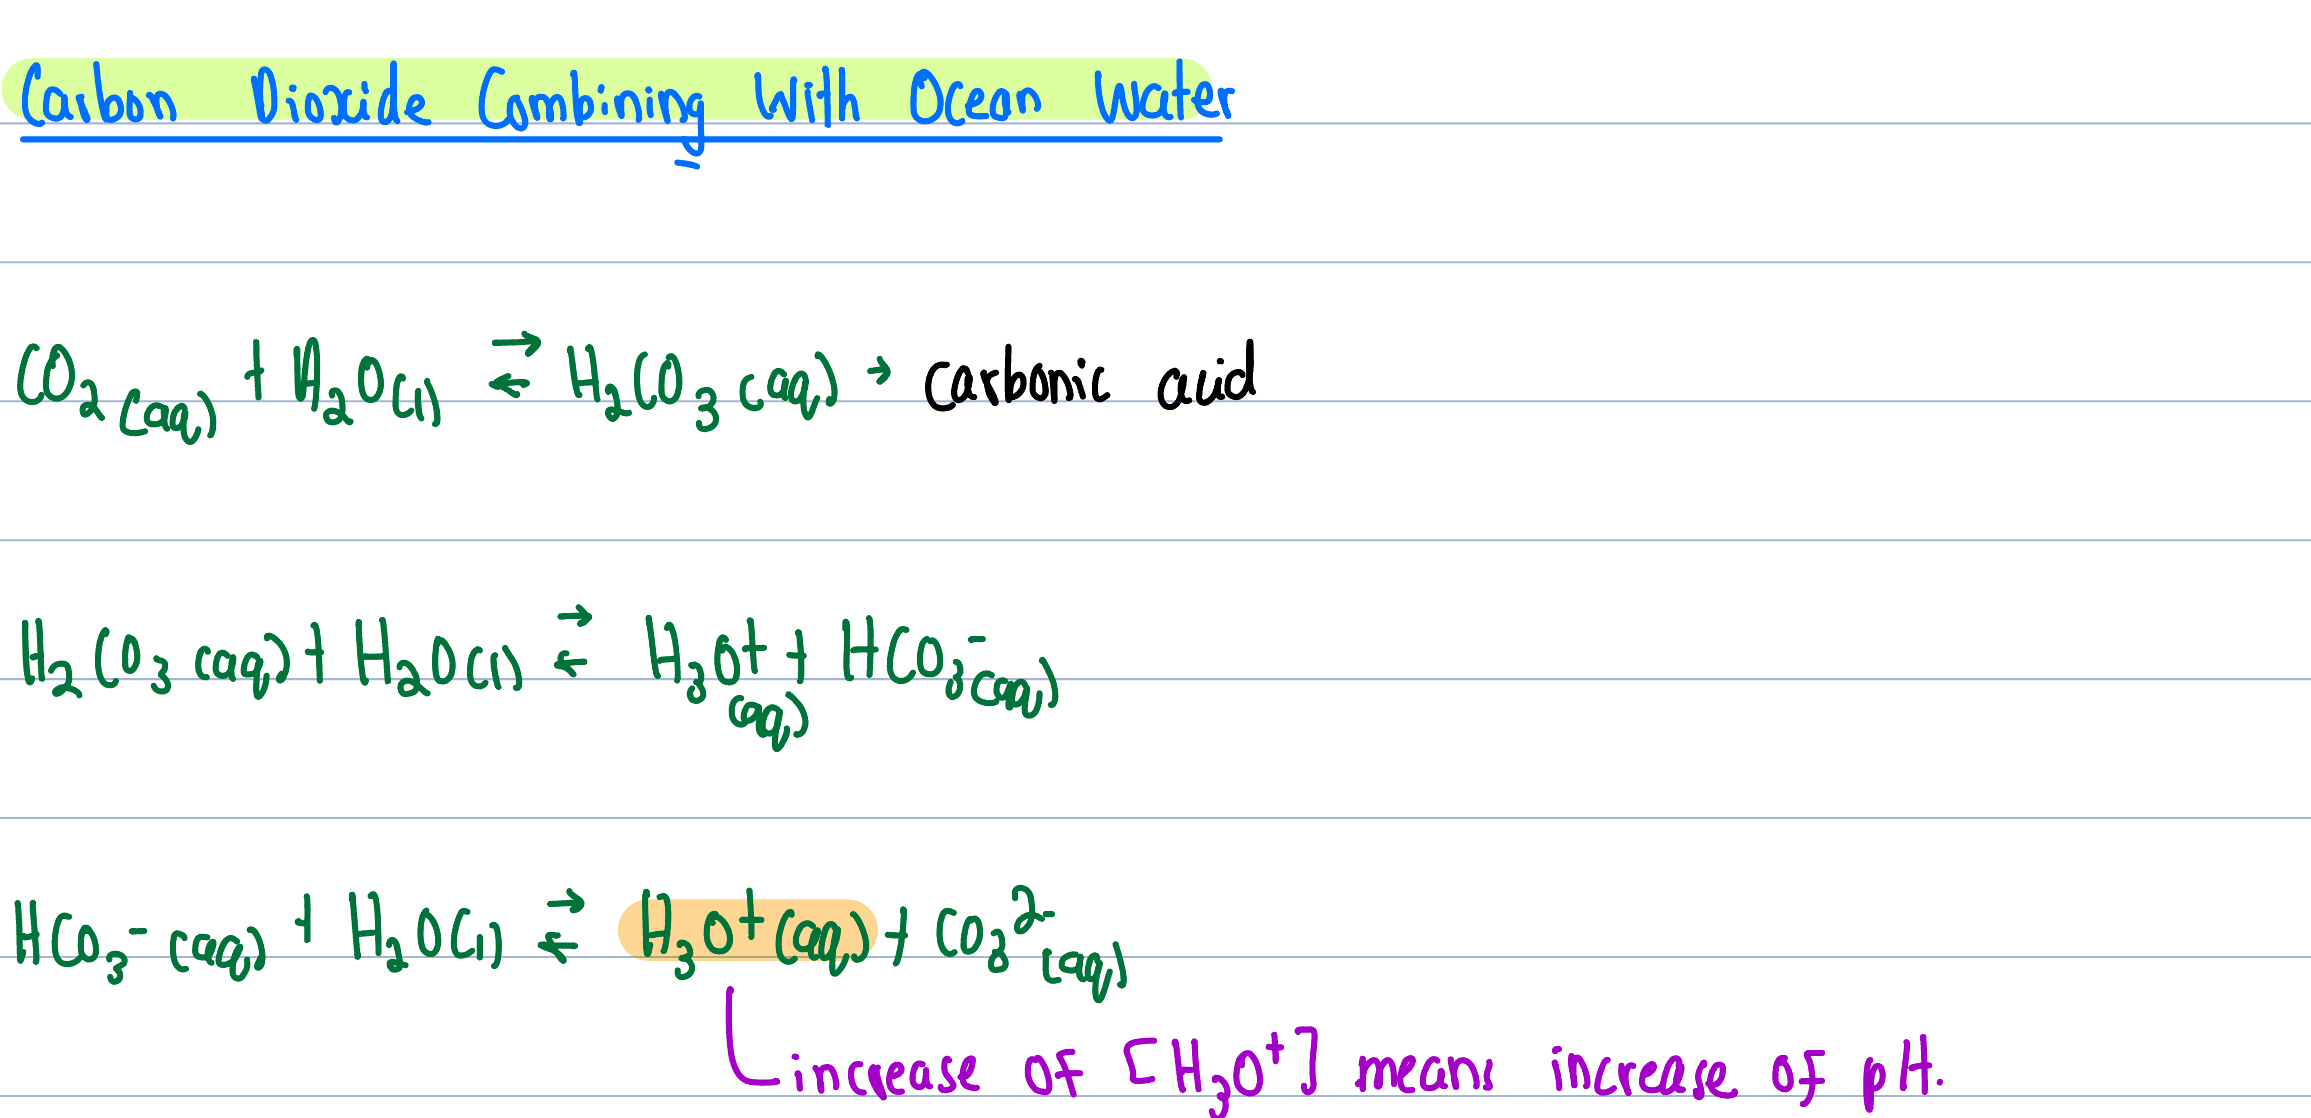 Carbon Dioxide Combining With Ocean Water
CO₂ (aq) + H₂O(l) ⇄ H₂CO₃ (aq) → carbonic acid
H₂CO₃ (aq) + H₂O(l) ⇄ H₃O⁺ (aq) + HCO₃⁻ (aq)
HCO₃⁻ (aq) + H₂O(l) ⇄ H₃O⁺ (aq) + CO₃²⁻ (aq)
increase of [H₃O⁺] means increase of pH.